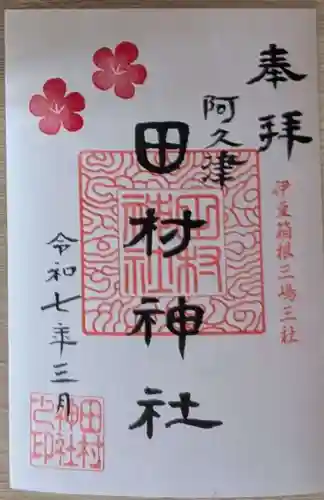 奉拝
伊豆箱根三嶋三社
阿久津
田村神社
令和七年三月
田村神社
田村神社之印